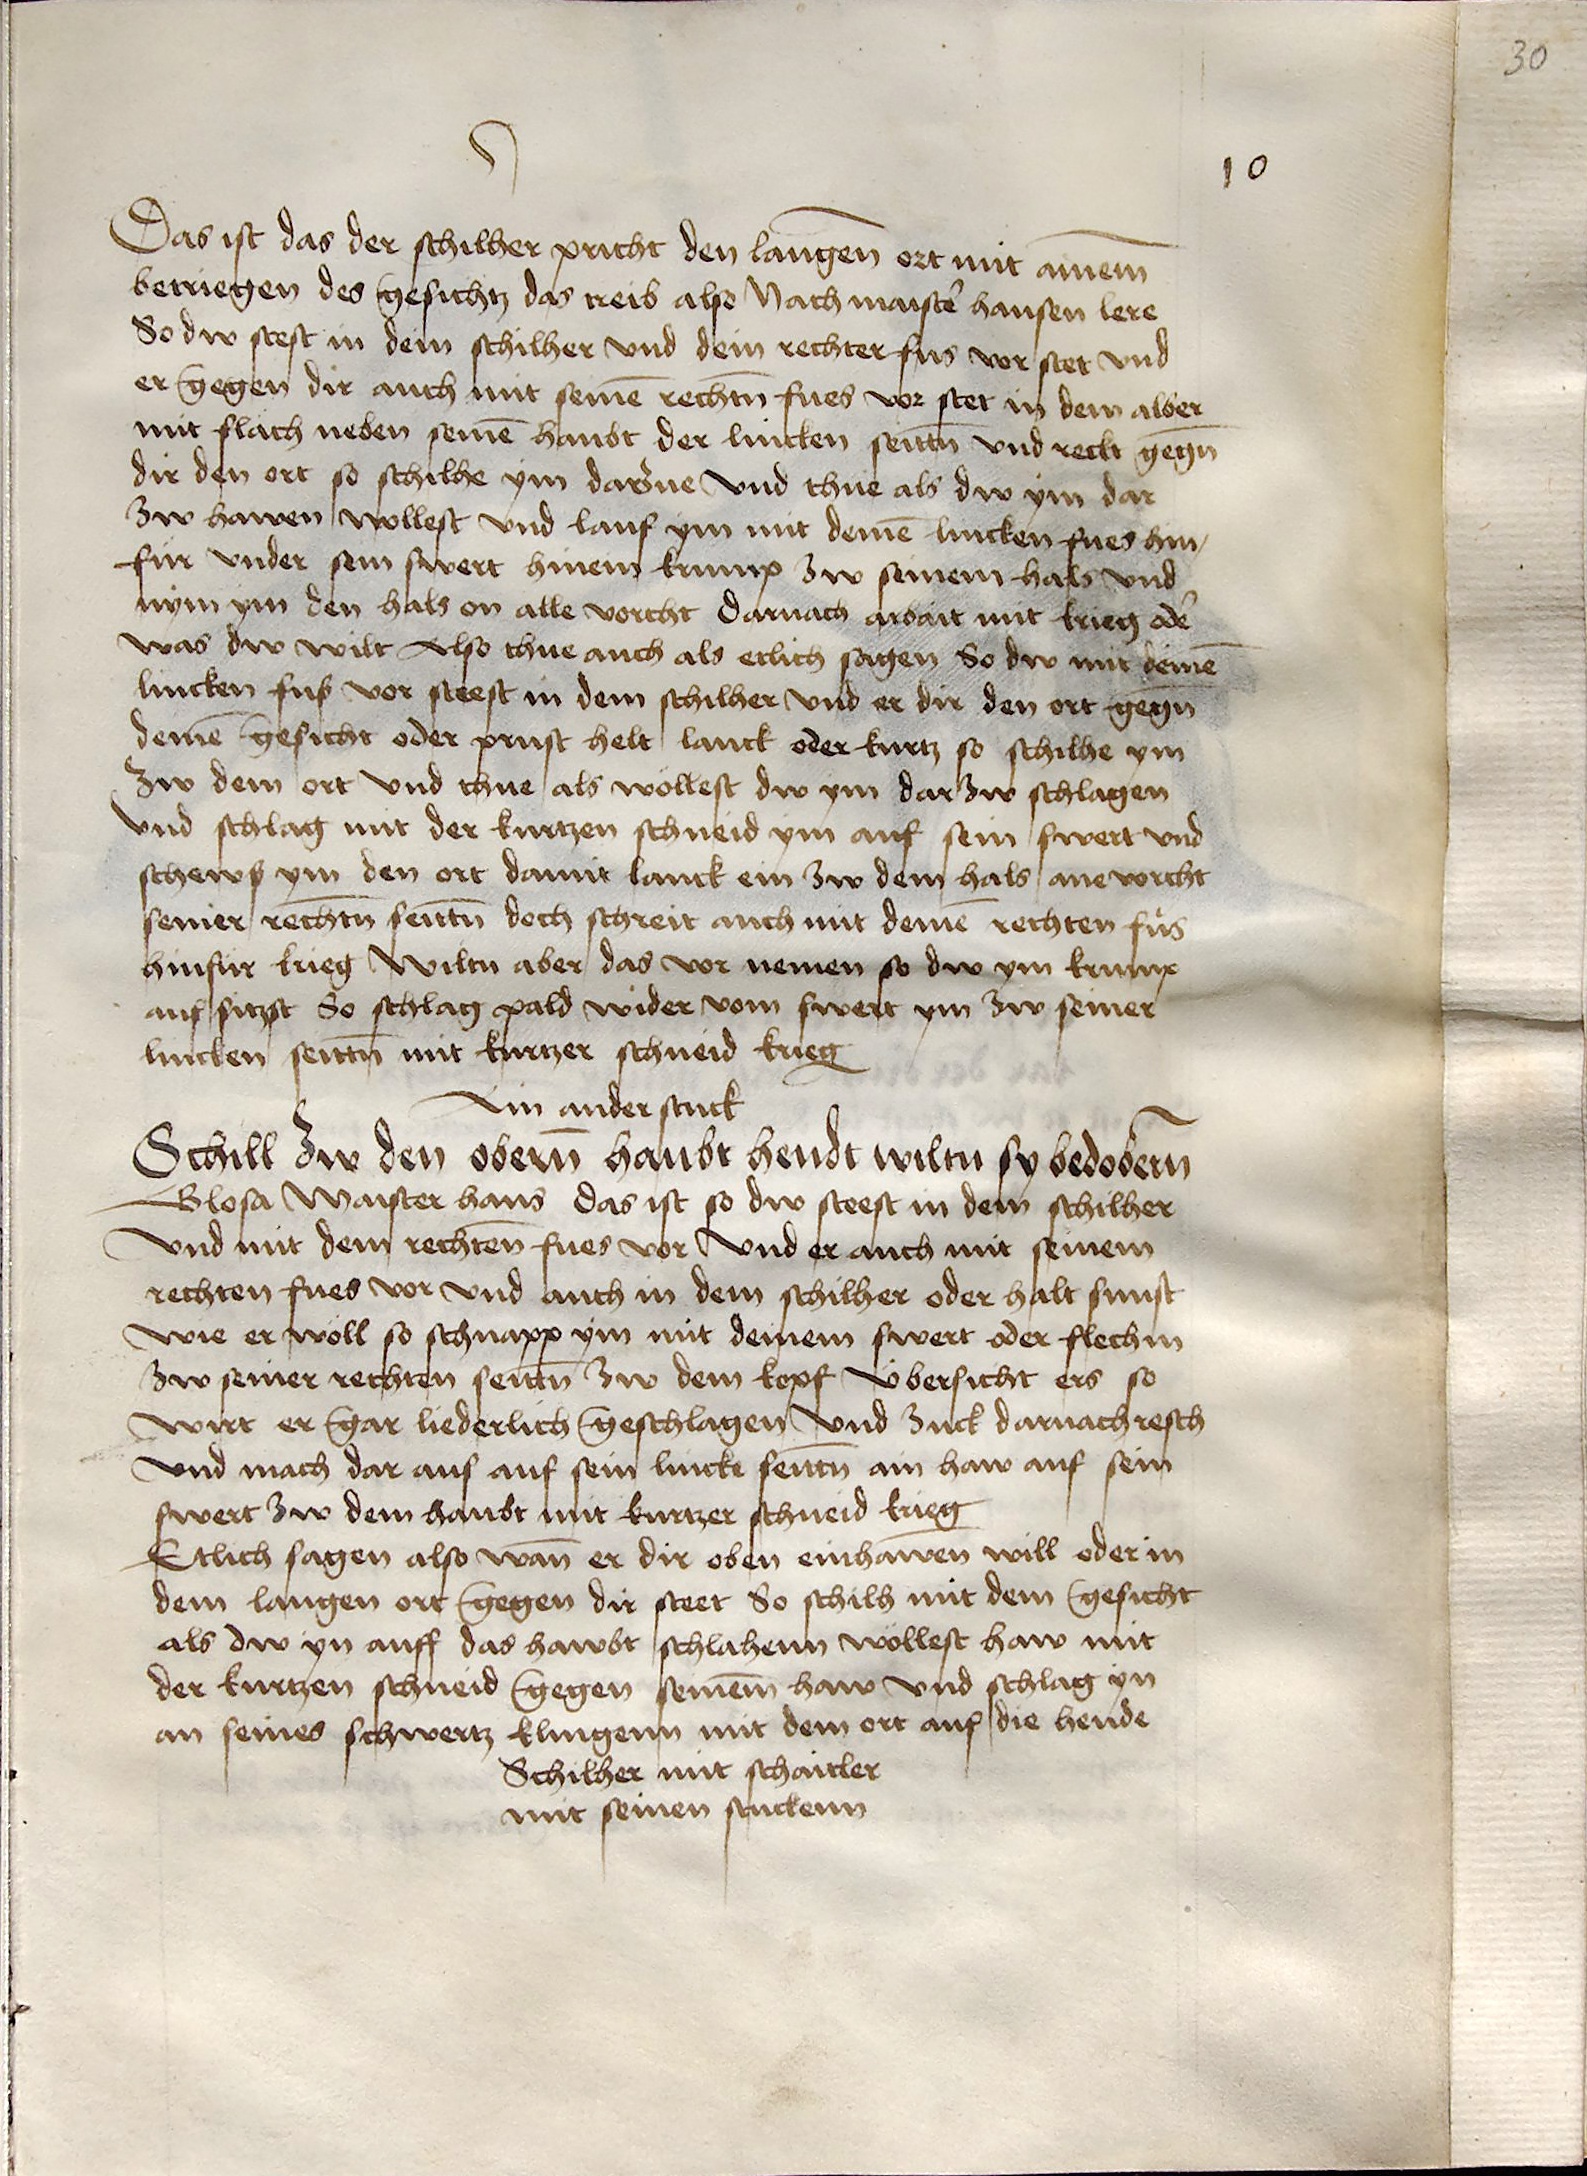 30
10
Das ist das der schilher pricht den langen̄ ort mit ainem̄
betriegen des gesichtz das treib also Nach maister̄ hansen lere
So dw stest in dein schilher vnd dein rechter fus vor stet vnd
er gegen dir auch mit seinē rechtn̄ fues vor stet in dem alber
mit flach neben seinē haubt der lincken seittn̄ vnd reckt gegn̄
dir den ort so schilhe ym darzue vnd thue als dw ym dar
zw hawen wollest vnd lauf ym mit deinē lincken fues hin
für vnder sein swert hinein krump zw seinem hals vnd
nym ym den hals on alle vorcht darnach arbait mit krieg oder̄
was dw wilt Also thue auch als etlich sagen So dw mit deinē
lincken fuß vor steest in dem schilher vnd er dir den ort gegn̄
deinē gesicht oder prust helt lanck oder kurtz so schilhe ym
zw dem ort vnd thue als wöllest dw ym darzw schlagen
vnd schlag mit der kurtzen schneid ym auf sein swert vnd
schewß ym den ort damit lanck ein zw dem hals ane vorcht
seiner rechtn̄ seittn̄ doch schreit auch mit deinē rechten fus
hinfür krieg Wiltu aber das vor nemen so dw ym krump
auf sitzst So schlag pald wider vom swert ym zw seiner
lincken seittn̄ mit kurtzer schneid krieg
Ain ander stuck
Schill zw den obern̄ haubt hendt wiltu sy bedobern̄
Glosa Maister hans das ist so dw steest in dem schilher
vnd mit dem rechten̄ fues vor vnd er auch mit seinem
rechten fues vor vnd auch in dem schilher oder halt sunst
wie er wöll so schnapp ym mit deinem swert oder flechin
zw seiner rechten seittn̄ zw dem kopf übersicht ers so
wirt er gar liederlich geschlagen vnd zuck darnach resch
vnd mach dar auf auf sein lincke seittn̄ ain haw auf sein
swert zw dem haubt mit kurtzer schneid krieg
Etlich sagen also wan̄ er dir oben einhawen will oder in
dem langen ort gegen dir steet So schilh mit dem gesicht
als dw yn auff das hawbt schlahenn wöllest haw mit
der kurtzen schneid gegen seinem̄ haw vnd schlag yn
an seines schwertz klingenn mit dem ort auf die hende
Schilher mit schaitler
mit seinen stuckenn